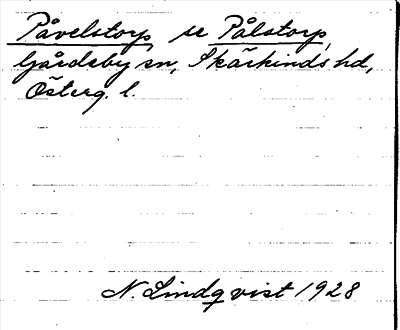 Påvelstorp, se Pålstorp,
Gårdeby sn, Skärkinds hd,
Österg. l.
N. Lindqvist 1928